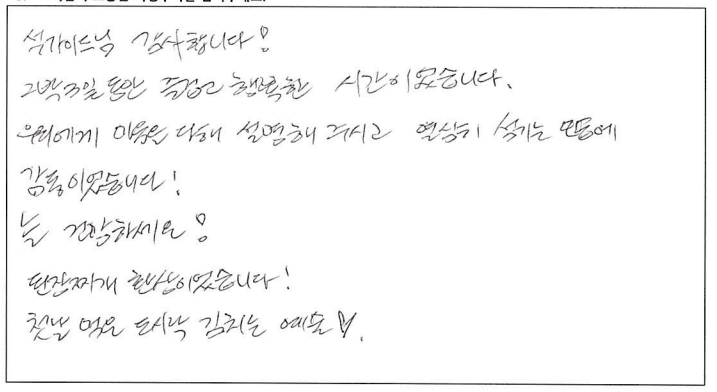 석가이드님 감사합니다!
2박3일 동안 즐겁고 행복한 시간이었습니다.
우리에게 마음을 다해 설명해 주시고 열심히 섬기는 모습에
감동이었습니다!
늘 건강하세요!
된장찌개 환상이었습니다!
첫날 먹은 도시락 김치는 예술♡.